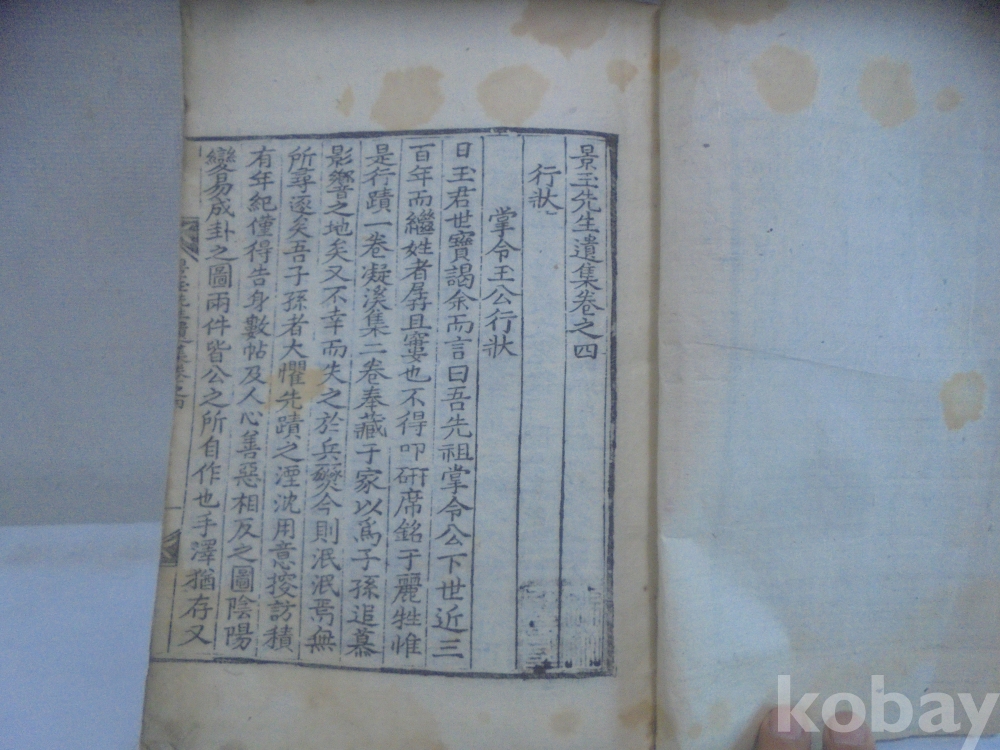 景玉先生遺集卷之四
行狀
掌令王公行狀
日玉君世寶謁余而言曰吾先祖掌令公下世近三
百年而繼姓者孱且窶也不得叩硏席銘于麗牲惟
是行蹟一卷凝溪集二卷奉藏于家以爲子孫追慕
影響之地矣又不幸而失之於兵燹今則泯泯焉無
所尋逐矣吾子孫者大懼先蹟之湮沈用意搜訪積
有年紀僅得告身數帖及人心善惡相反之圖陰陽
變易成卦之圖兩件皆公之所自作也手澤猶存又
景玉先生遺集卷之四
kobay